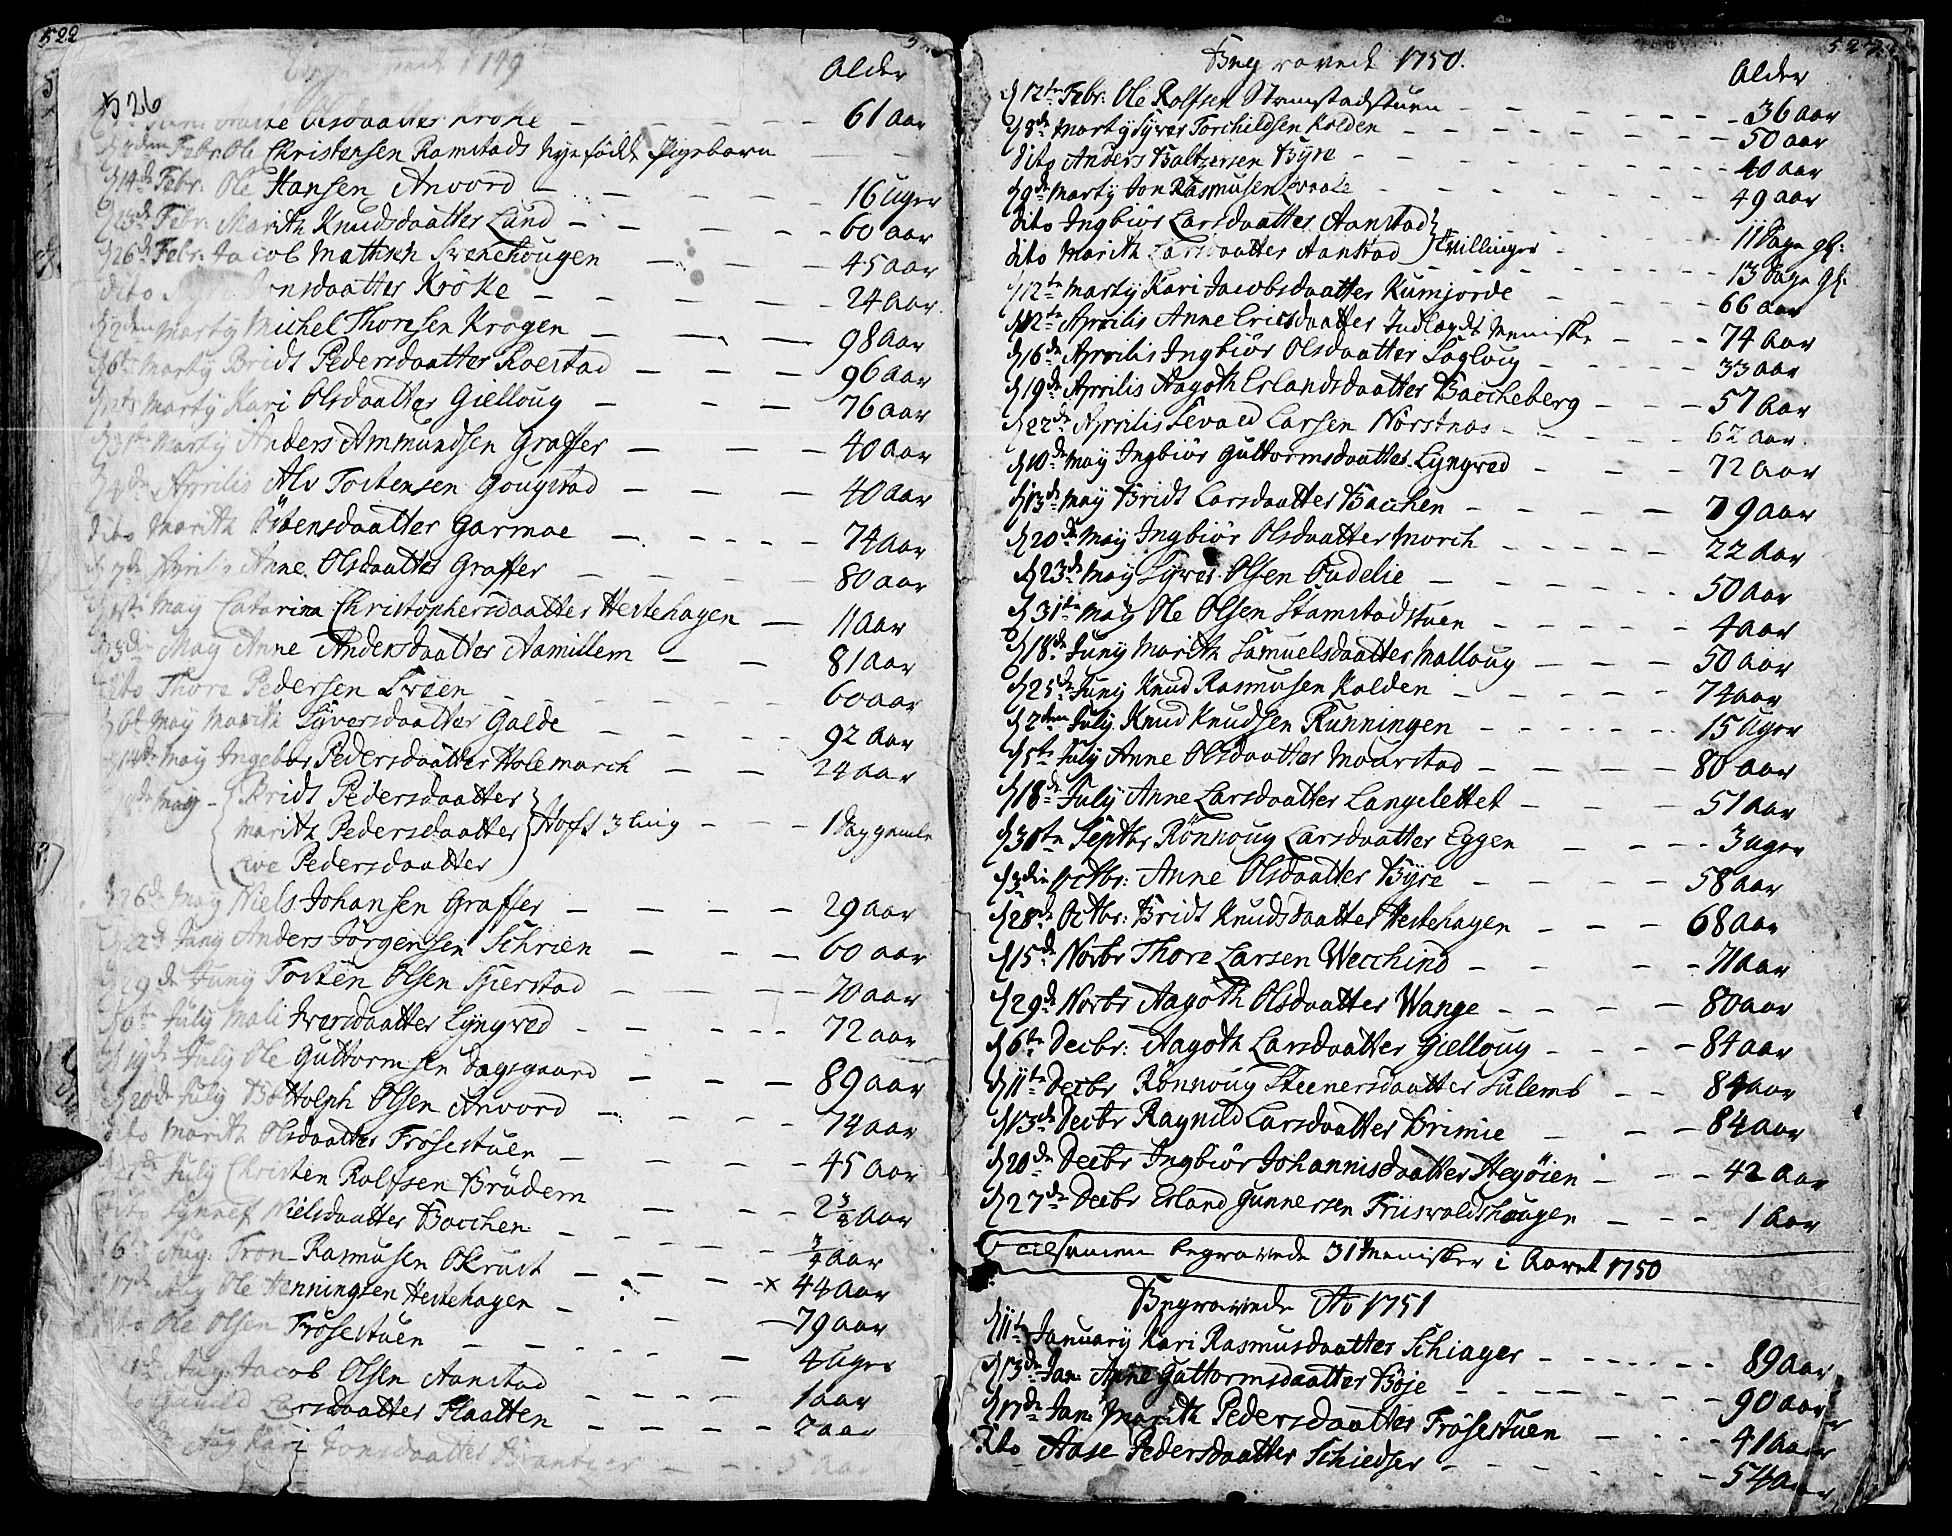 522
1749
Alder
526
Olsdaatter Krøke - - - 61 Aar
Febr. Ole Christensen Ramstads Nyefødde Pigebarn - -
d 14de Febr. Ole Hansen Anvord - - - 16 Uger
d 23de Febr. Marith Knudsdaatter Lund - - - 60 aar
d 26de Febr. Jacob Mathisen Svenehougen - - - 45 aar
dito Jonsdaatter Krøke - - - 24 Aar
Marty Michel Thoresen Krogen - - - 98 Aar
Marty Bridt Pedersdaatter Roestad - - - 96 aar
Marty Kari Olsdaatter Gielloug - - - 76 aar
Marty Anders Ammundsen Graffer - - - 40 Aar
Aprilis Alv Tostensen Gougstad - - - 40 Aar
dito Marith Østensdaatter Garmoe - - - 74 Aar
d 7de Aprilis Anne Olsdaatter Graffer - - - 80 aar
May Catarina Christophersdaatter Hestehagen - 11 Aar
d 3die May Anne Andersdaatter Aamillem - - 81 Aar
dito Thore Pedersen Sveen - - - 60 aar
d 6te May Marith Syversdaatter Galde - - - 92 Aar
d 14de May Ingebor Pedersdaatter Holemorch - - 24 aar
May - Bridt Pedersdaatter
Marith Pedersdaatter Hoft 3ling - - - 1 Dag gamle
Live Pedersdaatter
d 26de May Niels Johansen Graffer - - - 29 aar
d 22de Juny Anders Jørgensen Schrien - - - 60 aar
d 29de Juny Tosten Olsen Sperstad - - - 70 aar
d 6te July Mali Iversdaatter Lyngved - - - 72 aar
d 19de July Ole Guttormsen Dagsgaard - - - 89 aar
d 20de July Botholph Olsen Anvord - - - 74 aar
dito Marith Olsdaatter Frøsestuen - - - 45 Aar
July Christen Rolfsen Brudem - - - 2 3/4 Aar
dito Synnef Nielsdaatter Bacchen - - - 3/4 Aar
d 6te Aug: Tron Rasmusen Okrust - - - x 44 Aar
d 17de Aug Ole Henningsen Hestehagen - - - 79 aar
dito Ole Olsen Frøsestuen - - - 4 Uger
Aug: Jacob Olsen Aanstad - - - 1 aar
Larsdaatter Flaatten - - - 7 aar
Aug Kari Jonsdaatter - - - 5 Aar
527
Begravede 1750.
Alder
d 12te Febr: Ole Rolfsen Stamstadstuen - - - 36 aar
d 8de Marty Syver Torchildsen Kolden - - - 50 aar
dito Anders Baltzersen Byre - - - 40 aar
d 9de Marty Jon Rasmusen - - - 49 aar
dito Ingbiør Larsdaatter Aanstad - - - 11 Dage gl:
dito Marith Larsdaatter Aanstad Tvillinger - - - 13 Dage gl:
d 12te Marty Kari Jacobsdaatter Rumjorde - - - 66 aar
d 12te Aprilis Anne Ericsdaatter Indlagdt Meniske - - - 74 aar
d 16de Aprilis Ingbiør Olsdaatter Sogloug - - - 33 aar
d 19de Aprilis Aagoth Erlandsdaatter Baccheberg - - - 57 Aar
d 22de Aprilis Sevald Larsen Norstnæs - - - 62 aar
d 10de May Ingbiør Guttormsdaatter Lyngved - - - 72 aar
d 13de May Bridt Larsdaatter Bacchen - - - 79 aar
d 20de May Ingbiør Olsdaatter Morch - - - 22 Aar
d 23de May Syver Olsen Oudelie - - - 50 aar
d 31te May Ole Olsen Stamstadstuen - - - 4 aar
d 18de Juny Marith Samuelsdaatter Malloug - - - 50 aar
d 25de Juny Knud Rasmusen Kolden - - - 74 aar
d 2den July Knud Knudsen Runningen - - - 15 Uger
d 5te July Anne Olsdaatter Maarstad - - - 80 aar
d 18de July Anne Larsdaatter Langelettet - - - 51 aar
d 30te Septbr Rønnoug Larsdaatter Eggen - - - 3 uger
d 3die Octbr: Anne Olsdaatter Byre - - - 58 aar
d 28de Octbr: Bridt Knudsdaatter Hestehagen - - - 68 aar
d 15de Novbr Thore Larsen Wecchind - - - 71 aar
d 29de Novbr Aagoth Olsdaatter Wange - - - 80 aar
d 6te Decbr: Aagoth Larsdaatter Gielloug - - - 84 aar
d 11te Decbr Rønnoug Steenersdaatter Sulemb - - 84 aar
d 13de Decbr Ragnild Larsdaatter Brimie - - - 84 aar
d 20de Decbr Ingbiør Johannisdaatter Steyøien - - - 42 aar
d 27de Decbr Erland Gunnersen Friisvoldshougen - - - 1 Aar
Tilsamen begravede 31 Menisker i Aaret 1750
Begravede Ao 1751
d 11te January Kari Rasmusdaatter Schiager - - - 89 aar
d 13de Jan: Anne Guttormsdaatter Bøje - - - 90 aar
d 17de Jan: Marith Pedersdaatter Frøsestuen - - - 41 Aar
dito Aase Pedersdaatter Schiedser - - - 54 Aar